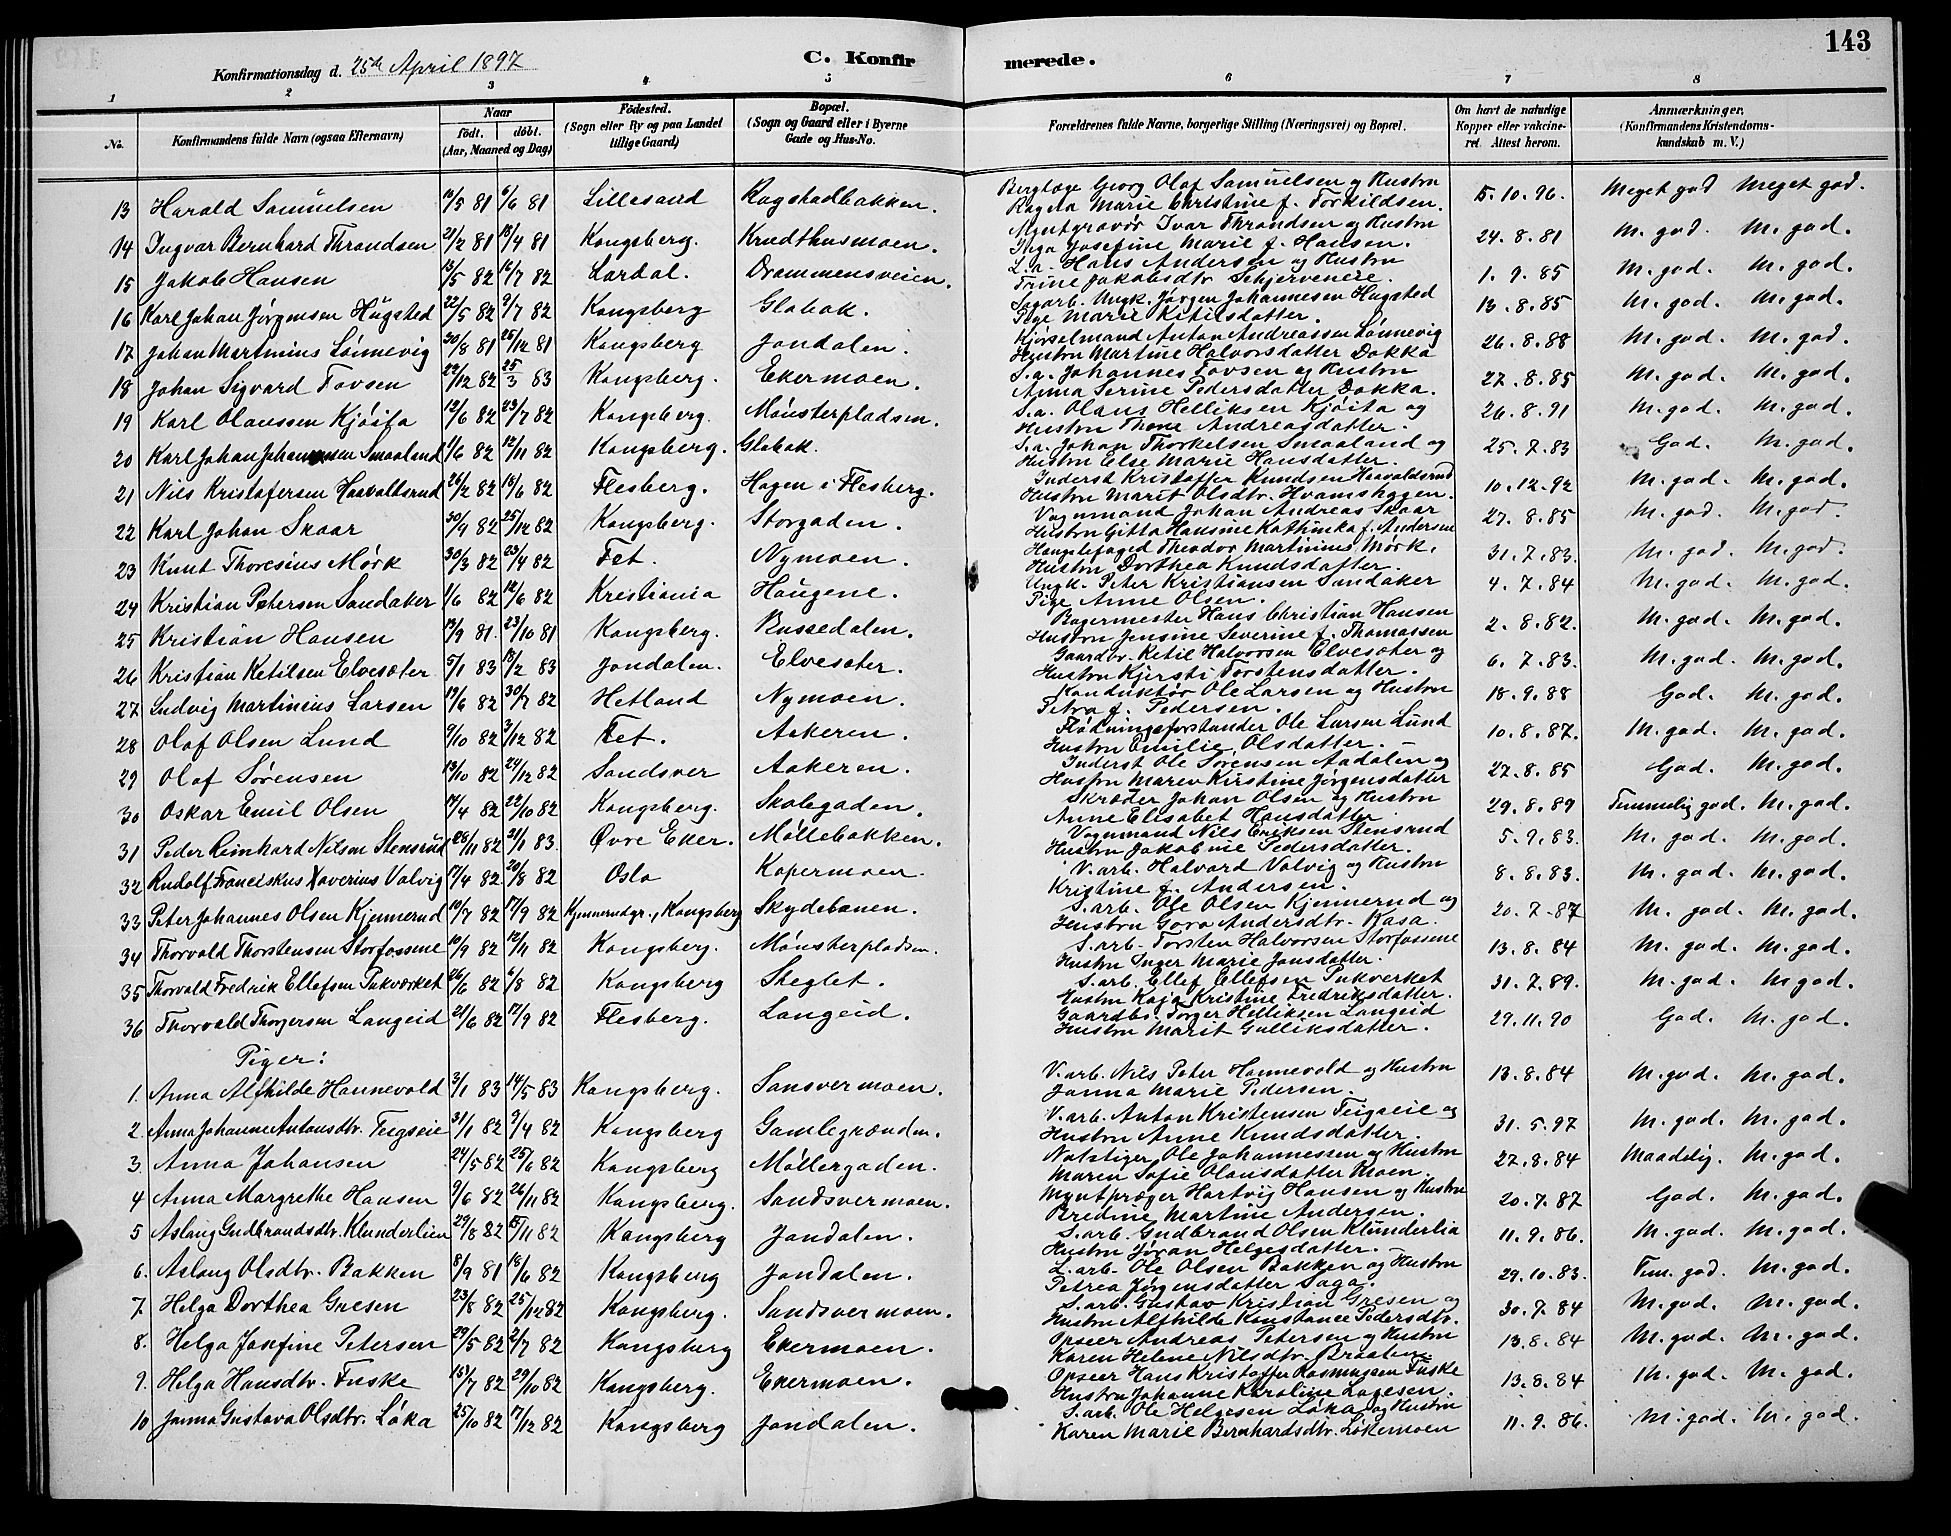 143
Konfirmationsdag d. 25de April 1897
C. Konfirmerede.
1 2 3 4 5 6 7 8
No.
Konfirmandens fulde Navn (ogsaa Efternavn)
Naar
født. døbt.
(Aar, Maaned og Dag)
Fødested.
(Sogn eller By og paa Landet
tillige Gaard)
Bopæl.
(Sogn og Gaard eller i Byerne
Gade og Hus-No.
Forældrenes fulde Navne, borgerlige Stilling (Næringsvei) og Bopæl.
Om havt de naturlige
Kopper eller vakcine-
ret. Attest herom.
Anmærkninger.
(Konfirmandens Kristendoms-
kundskab m. V.)
13 Harald Samuelsen /5 81 6/6 81 Lillesand Ragstadbakken. Bergtage Georg Olaf Samuelsen og Hustru
Ragna Marie Christine f. Torkildsen. 5.10.96. Meget god Meget god.
14 Ingvar Bernhard Thrandsen 21/2 81 18/4 81 Kongsberg. Krudthusmoen. Myntgravør Ivar Thrandsen og Hustru
Inga Josefine Marie f. Hansen. 24.8.81 M. god. M. god.
15 Jakob Hansen /5 82 16/7 82 Lardal. Drammensveien. L.a. Hans Andersen og Hustru
Trine Jakobsdtr. Skjervenere. 1.9.85 M. god. M. god.
16 Karl Johan Jørgensen Hugsted 22/5 82 9/7 82 Kongsberg Glabak. Sagarb. Ungk. Jørgen Johannesen Hugsted
Pige Marie Ketilsdatter. 13.8.85 M. god. M. god.
17 Johan Martinius Lønnevig 30/8 81 26/12 81 Kongsberg Jondalen. Kjørselmand Anton Andreassen Lønnevig
Hustru Martine Halvorsdatter Dokka 26.8.88 M. god M. god.
18 Johan Sigvard Tovsen /12 82 25/3 83 Kongsberg. Ekermoen. S.a. Johannes Tovsen og Hustru
Anna Serine Pedersdatter Dokka. 27.8.85 M. god. M. god.
19 Karl Olaussen Kjøita 12/6 82 23/7 82 Kongsberg. Mønsterpladsen. S.a. Olaus Helliksen Kjøita og
Hustru Thone Andreasdatter. 26.8.91 M. god. M. god.
20 Karl Johan Johannesen Smaaland 1/6 82 12/11 82 Kongsberg. Glabak. S.a. Johan Thorkelsen Smaaland og
Hustru Else Marie Hansdatter. 25.7.83 God. M. god.
21 Nils Kristofersen Haavaldsrud 26/2 82 18/6 82 Flesberg. Hagen i Flesberg. Inderst Kristoffer Knudsen Haavaldsrud
Hustru Marit Olsdtr. Hvamshagen. 10.12.92 M. god. M. god.
22 Karl Johan Skaar 30/9 82 25/12 82 Kongsberg. Storgaden. Vognmand Johan Andreas Skaar
Hustru Gitta Hansine Kathinka f. Andersen 27.8.85 M. god. M. god.
23 Knut Thoresius Mørk 30/3 82 23/4 82 Fet. Nymoen. Theodor Martinius Mørk.
Hustru Dorthea Knudsdatter. 31.7.83. M. god. M. god.
24 Kristian Petersen Sandaker 1/6 82 12/6 82 Kristiania Haugene. Ungk. Peter Kristiansen Sandaker
Pige Anne Olsen. 4.7.84 M. god. M. god.
25 Kristian Hansen 13/9 81. 23/10 81 Kongsberg. Bussedalen. Bagermester Hans Christian Hansen
Hustru Jensine Severine f. Thomassen 2.8.82. M. god. M. god.
26 Kristian Ketilsen Elvesæter 5/1 83 13/2 83 Jondalen. Elvesæter. Gaardbr. Ketil Halvorsen Elvesæter og
Hustru Kjersti Torstensdatter. 6.7.83. M. god. M. god.
27 Ludvig Martinius Larsen 19/6 82 30/7 82 Hetland Nymoen. Konduktør Ole Larsen og Hustru
Petra f. Pedersen. 18.9.88 God. M. god.
28 Olaf Olsen Lund 9/10 82 3/12 82 Fet. Aakeren. Flødningsforstander Ole Larsen Lund
Hustru Emilie Olsdatter. 10.8.87. M. god. M. god.
29 Olaf Sørensen 13/10 82 24/12 82 Sandsver Aakeren. Inderst Ole Sørensen Aadalen og
Hustru Maren Kirstine Jørgensdatter 27.8.85 God. M. god.
30 Oskar Emil Olsen 17/4 82 22/10 82 Kongsberg. Skolegaden. Skræder Johan Olsen og Hustru
Anne Elisabet Hansdatter 29.8.89 Temmelig god. M. god.
31 Peder Reinhard Nilsen Stensrud 28/11 82 21/1 83. Øvre Eker. Møllebakken. Vognmand Nils Eriksen Stensrud
Hustru Jakobine Pedersdatter. 5.9.83. M. god. M. god.
32 Rudolf Franciskus Xaverius Valvig 17/4 82 20/8 82 Oslo Kapermoen. V.arb. Halvard Valvig og Hustru
Kristine f. Andersen. 8.8.83. M. god. M. god.
33 Peter Johannes Olsen Kjennerud 10/7 82 17/9 82 Kjennerudgr., Kongsberg Skydebanen. S.arb. Ole Olsen Kjennerud og
Hustru Goro Andersdtr. Kasa. 20.7.87 M. god. M. god.
34 Thorvald Thorstensen Storfossene 10/9 82 12/11 82 Kongsberg. Mønsterpladsen. S.arb. Torsten Halvorsen Storfossene
Hustru Inger Marie Jonsdatter. 13.8.84 M. god. M. god.
35 Thorvald Fredrik Ellefsen Pukværket 26/6 82 6/8 82 Kongsberg Steglet. S.arb. Ellef Ellefsen Pukverket
Hustru Kaja Kristine Fredriksdatter. 31.7.89. M. god M. god.
36 Thorvald Thorgersen Langeid 21/6 82 17/9 82 Flesberg. Langeid. Gaardbr. Torger Helliksen Langeid
Hustru Marit Gulliksdatter. 29.11.90 God. M. god.
Piger:
1. Anna Alfhilde Hannevold 3/1 83 14/5 83 Kongsberg. Sansvermoen. V.arb. Nils Peter Hannevold og Hustru
Janna Marie Pedersen. 13.8.84 M. god. M. god.
2. Anna Johanne Antonsdtr. Teigseie 31/1 82 9/4 82 Kongsberg Gamlegrænden. V.arb. Anton Kristensen Teigseie og
Hustru Anne Knudsdatter. 31.5.97 M. god. M. god.
3. Anna Johansen 24/5 82 25/6 82 Kongsberg Møllergaden. Ole Johannesen og Hustru
Maren Sofie Olausdatter Moen. 27.8.84 Maadelig. M. god.
4 Anna Margrethe Hansen 9/6 82 26/11 82 Kongsberg. Sandsvermoen. Myntpræger Hartvig Hansen og Hustru
Bredine Martine Andersen. 20.7.87 God. M. god.
5 Aslaug Gudbrandsdtr. Klunderlien 29/8 82 15/11 82 Kongsberg Jondalen. S.arb. Gudbrand Olsen Klunderlia
Hustru Jøran Helgesdatter. 11.9.86. M. god. M. god.
6. Aslaug Olsdtr. Bakken 8/9 81 18/6 82 Kongsberg Jondalen. L.arb. Ole Olsen Bakken og Hustru
Petrea Jørgensdatter Saga. 29.10.83. Tem. god. M. god.
7. Helga Dorthea Gresen 23/8 82 25/12 82 Kongsberg. Sandsvermoen. S.arb. Gustav Kristian Gresen og
Hustru Alfhilde Konstance Pedersdtr. 30.7.84 M. god. M. god.
8. Helga Josefine Petersen 29/5 82 2/7 82 Kongsberg Ekermoen. Opseer Andreas Petersen og Hustru
Karen Helene Nilsdtr. Braaten. 13.8.84 M. god. M. god.
9. Helga Hansdtr. Fuske 15/7 82 29/10 82 Kongsberg. Ekermoen. Opseer Hans Kristoffer Rasmussen Fuske
Hustru Johanne Karoline Lagesen. 13.8.84 M. god M. god.
10 Janna Gustava Olsdtr. Løka 25/10 82 17/12 82 Kongsberg Jondalen. S.arb. Ole Helgesen Løka og Hustru
Karen Marie Bernhardsdtr. Løkemoen 11.9.86. M. god. M. god.